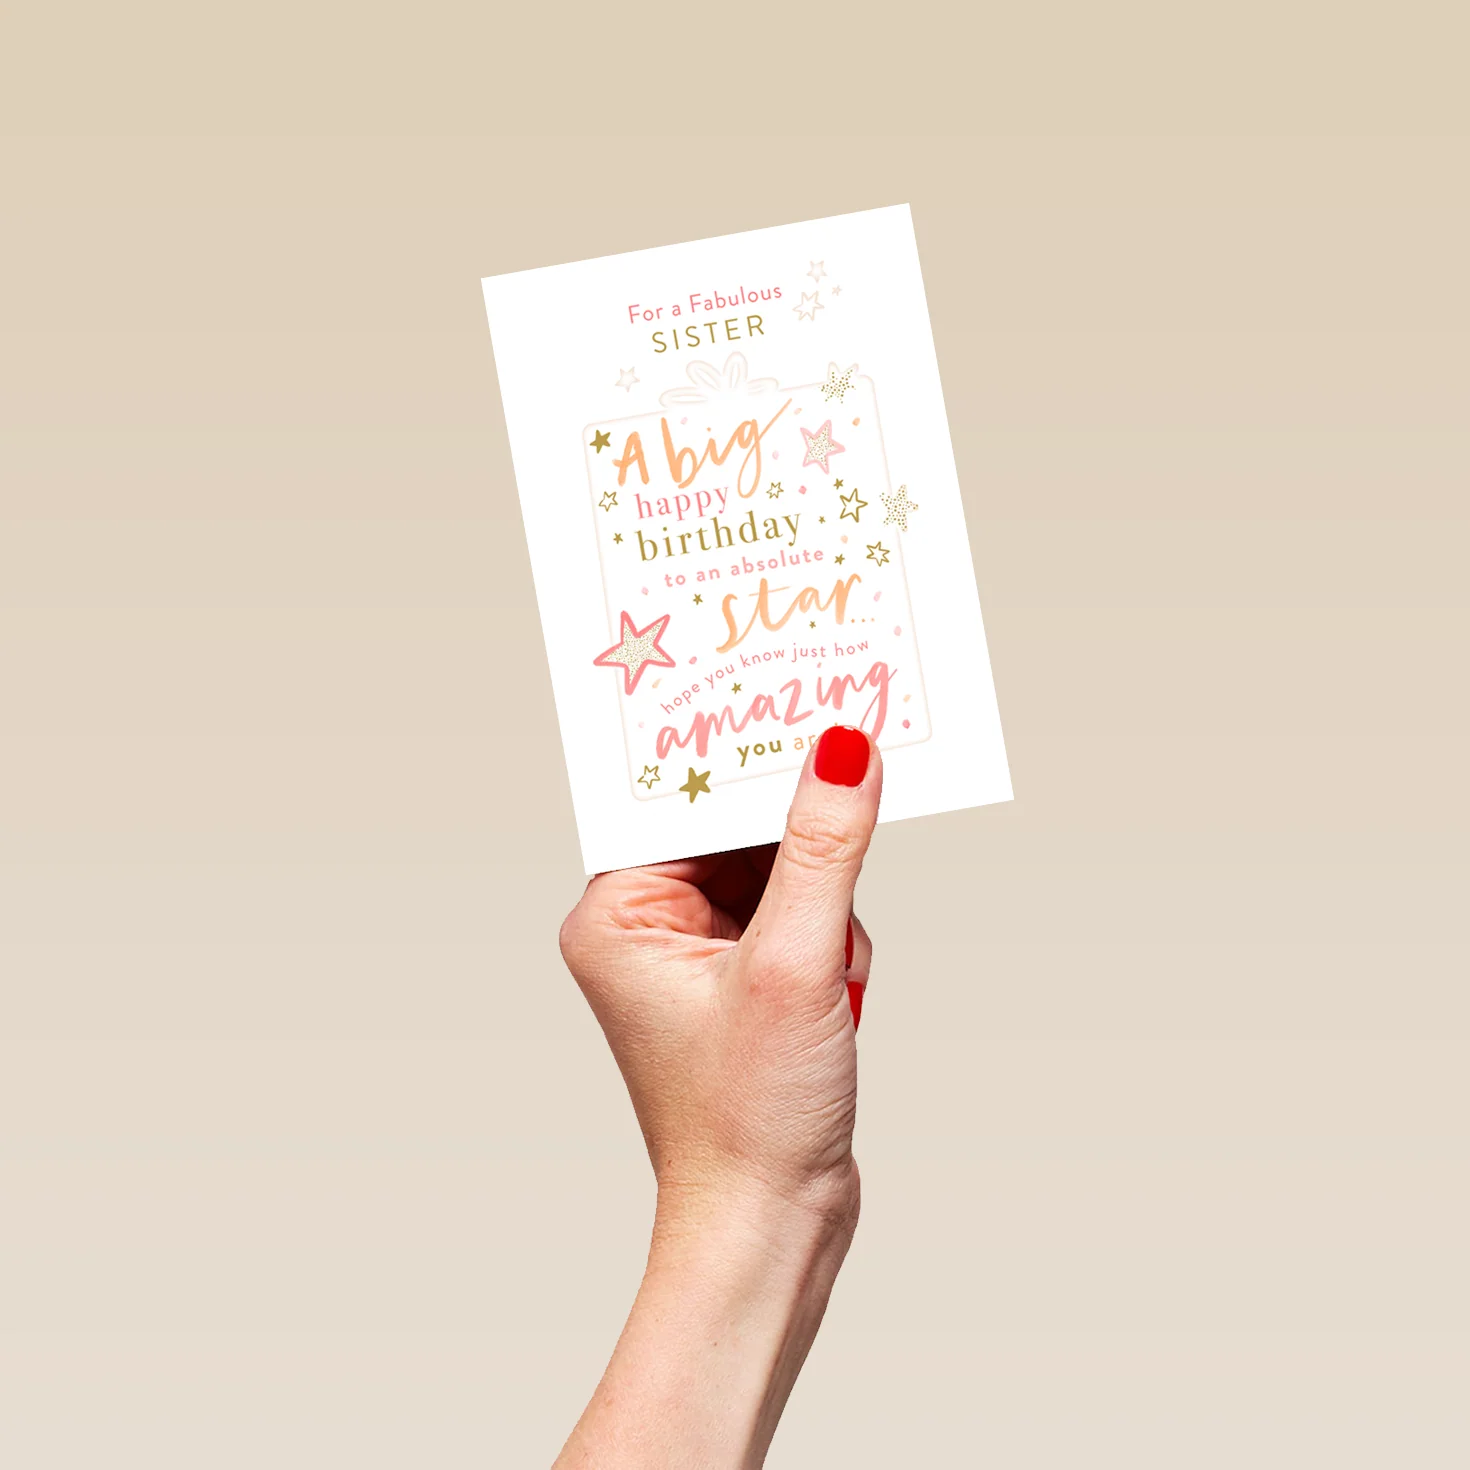 For a Fabulous
SISTER
A big
happy
birthday
to an absolute
star...
hope you know just how
amazing
you